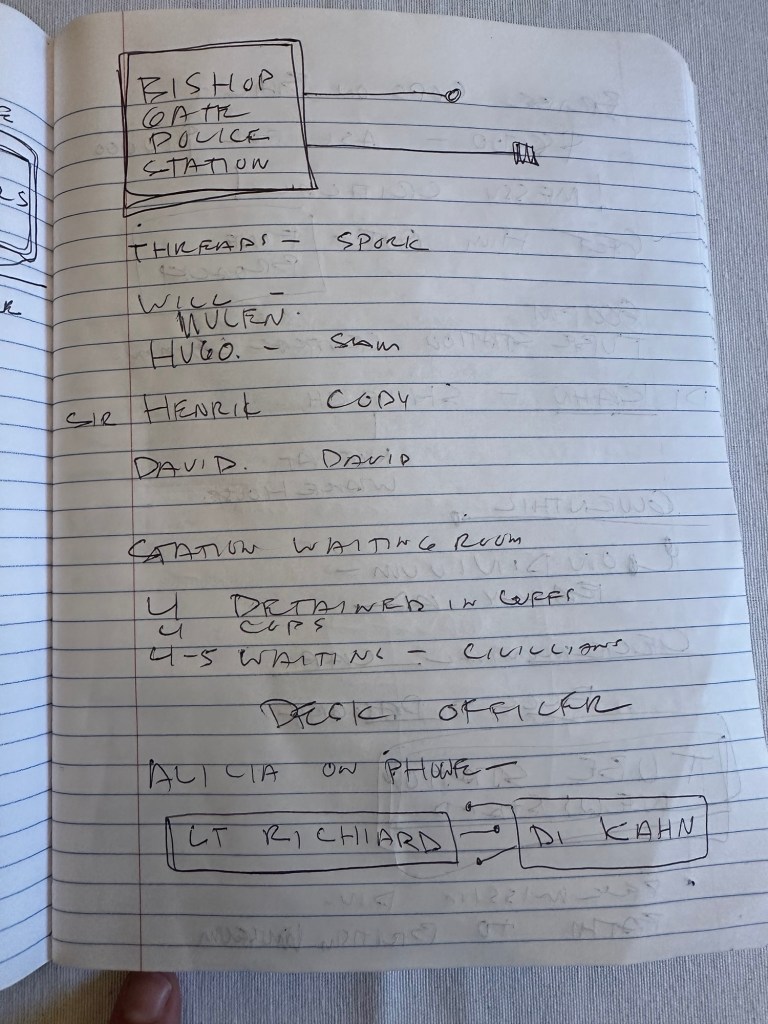 BISHOP
GATE
POLICE
STATION
THREADS - SPORK
WILL -
MULLEN.
HUGO. - SIAM
SIR HENRIK CODY
DAVID. DAVID
STATION WAITING ROOM
4 DETAINED IN CUFFS
4 COPS
4-5 WAITING - CIVILLIANS
DESK OFFICER
ALICIA ON PHONE -
LT RICHIARD DI KAHN